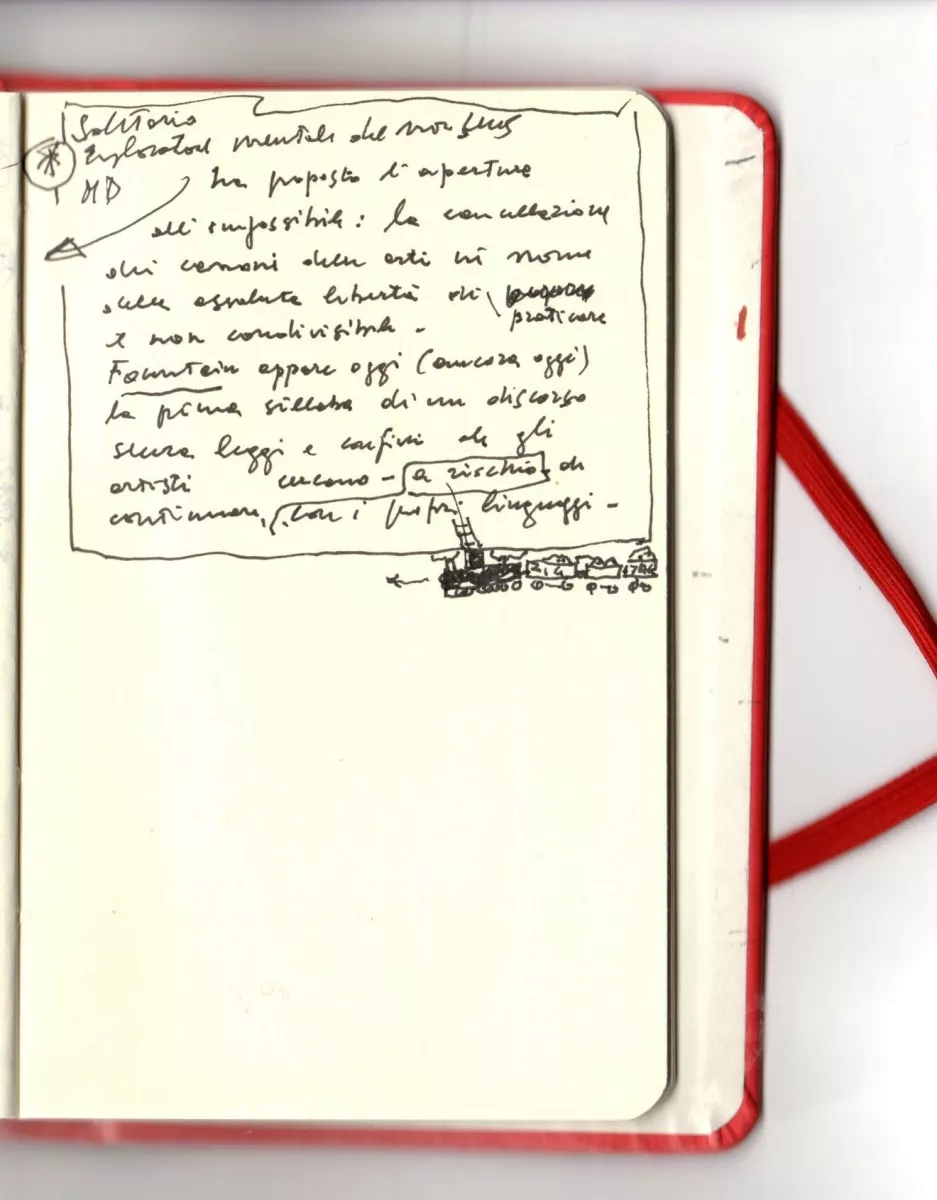 Solitario
Esploratore mentale del non sens
MD ha proposto l'apertura
all'impossibile: la cancellazione
dei canoni delle arti in nome
della assoluta libertà di
praticare
e non condivisibile -
Fountain appare oggi (ancora oggi)
la prima sillaba di un discorso
senza leggi e confini che gli
artisti cercano - a rischio - di
continuare, con i propri linguaggi -